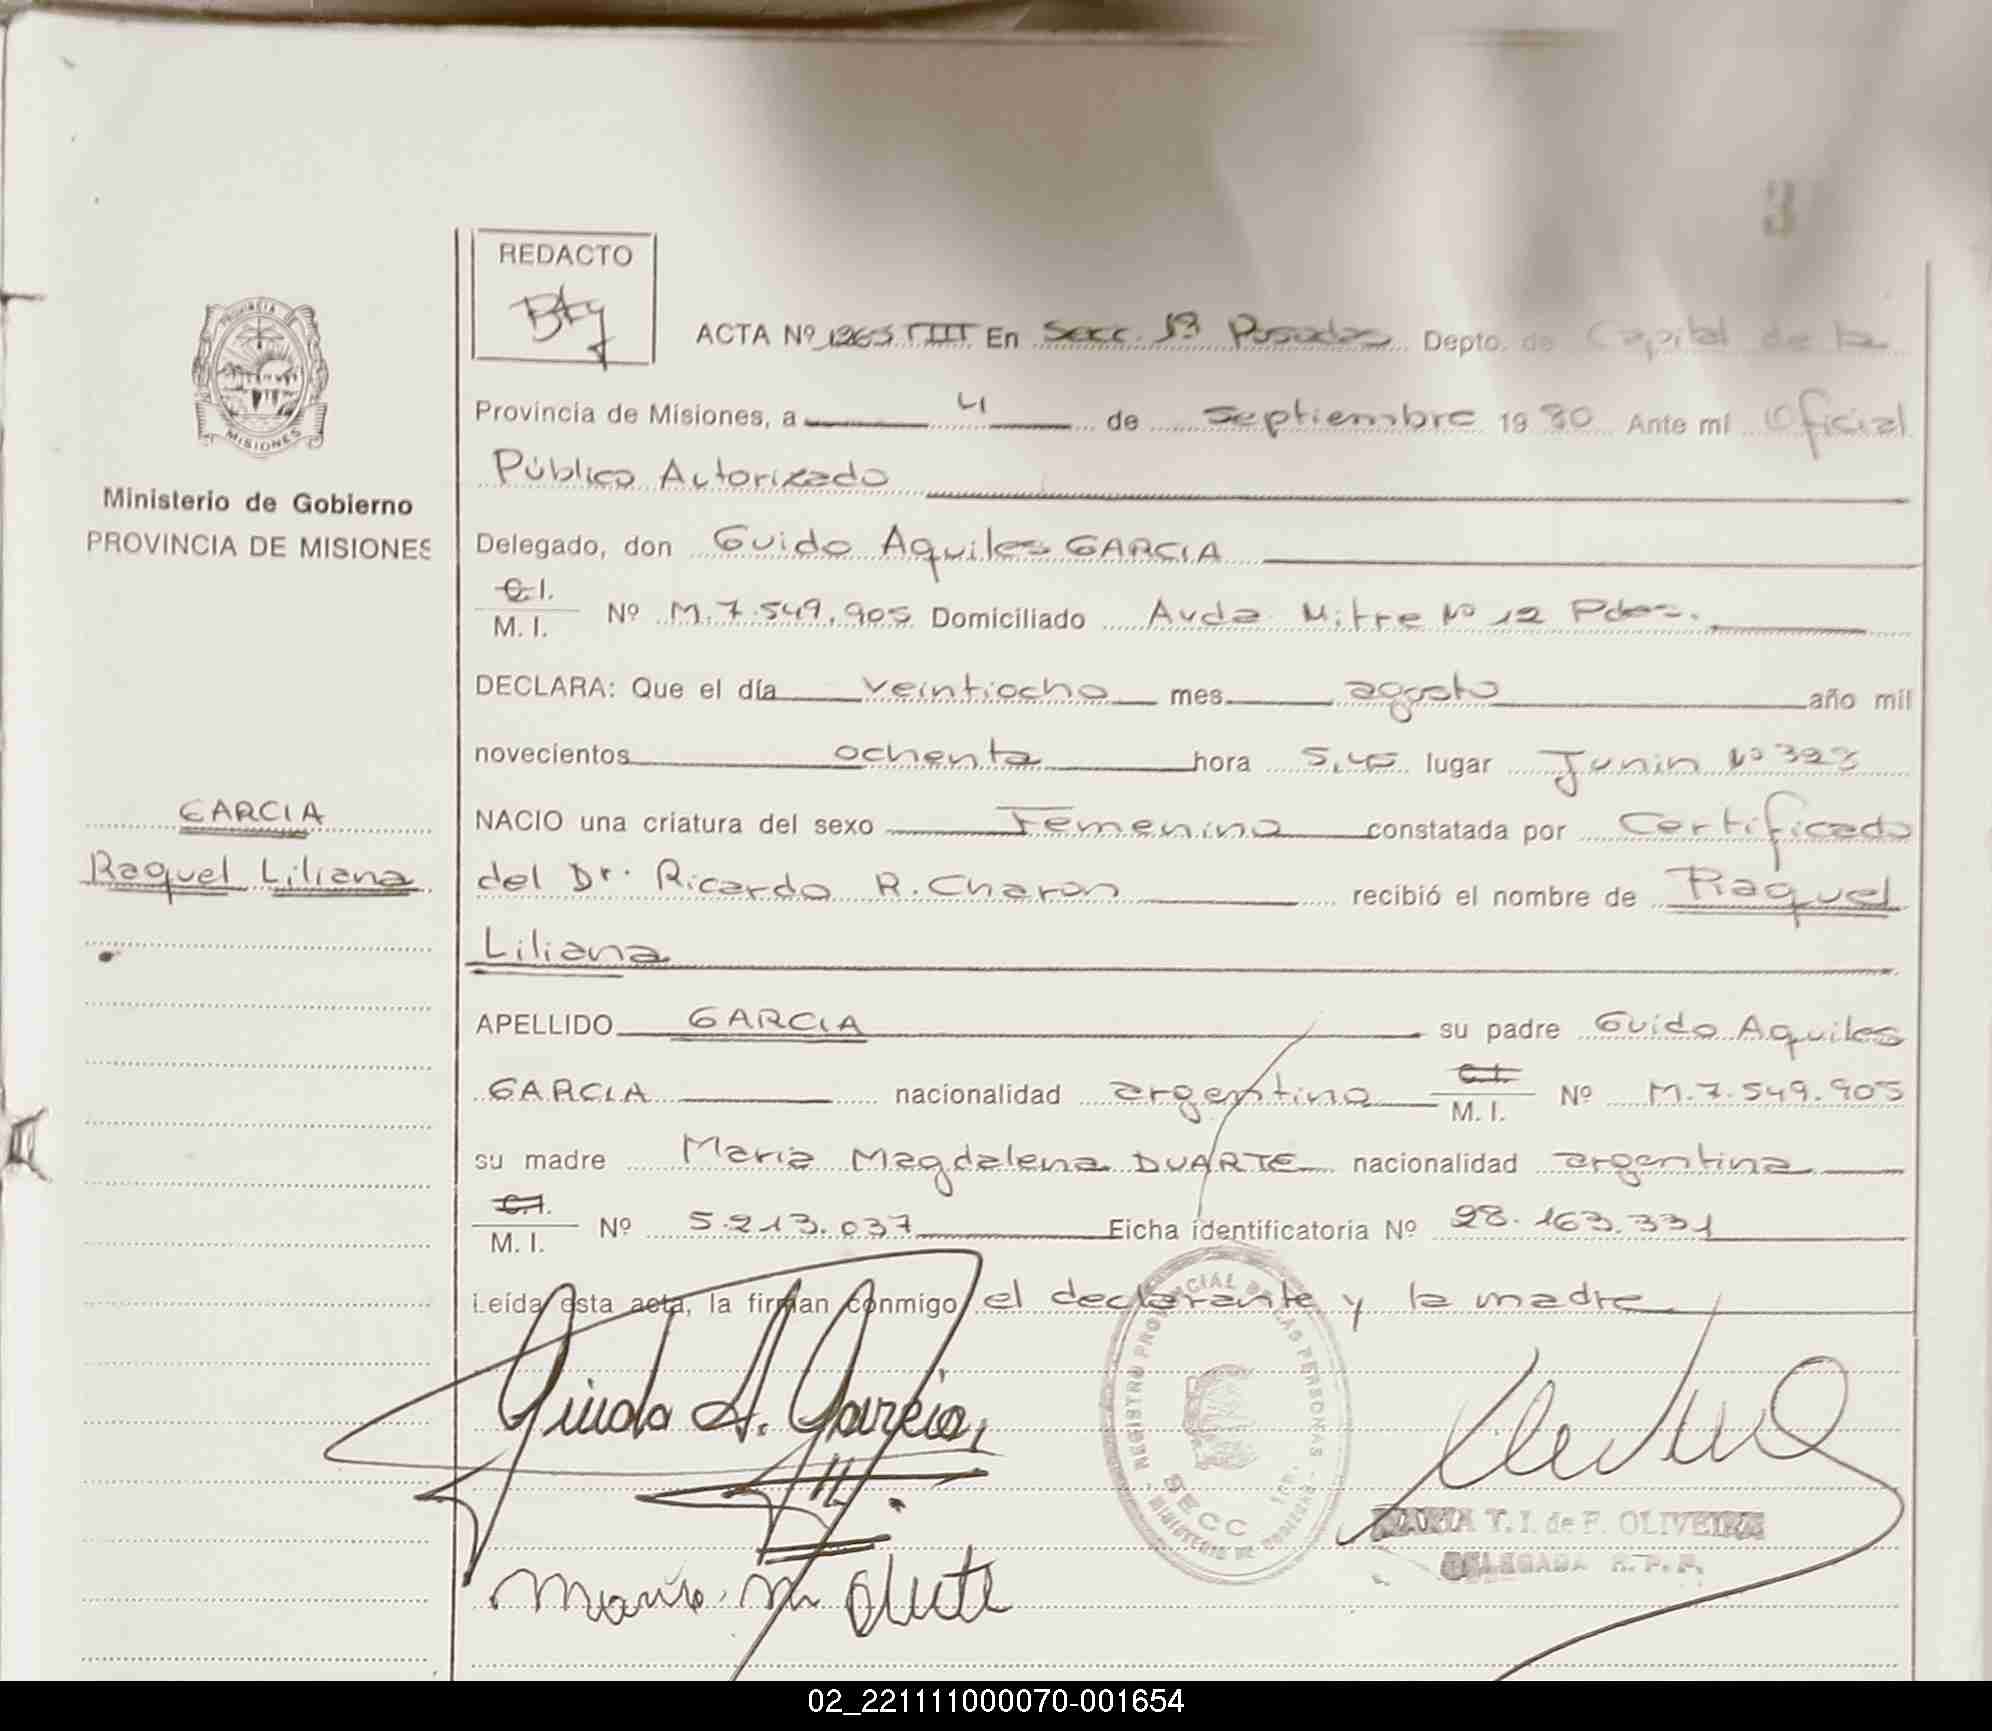 3
REDACTO
Bkg
ACTA Nº 1263 TIII En Secc. 1ª Posadas Depto. de Capital de la
Provincia de Misiones, a 4 de septiembre 1980 Ante mí Oficial
Público Autorizado
Delegado, don Guido Aquiles GARCIA
C.I. M. I. Nº M.7.549.905 Domiciliado Avda. Mitre Nº 12 Pdas.
DECLARA: Que el día veintiocho mes agosto año mil
novecientos ochenta hora 5,45 lugar Junin Nº 323
NACIO una criatura del sexo Femenino constatada por Certificado
del Dr. Ricardo R. Charon recibió el nombre de Raquel
Liliana
APELLIDO GARCIA su padre Guido Aquiles
GARCIA nacionalidad argentina C.I. M. I. Nº M.7.549.905
su madre Maria Magdalena DUARTE nacionalidad argentina
C.I. M. I. Nº 5.213.037 Ficha identificatoria Nº 28.163.331
Leída esta acta, la firman conmigo el declarante y la madre
Guido A. Garcia
REGISTRO PROVINCIAL DE LAS PERSONAS
SECC 1ra.
MARIA T. I. de F. OLIVEIRA
DELEGADA R.P.P.
Maria M Duarte
PROVINCIA DE MISIONES
Ministerio de Gobierno
PROVINCIA DE MISIONES
GARCIA
Raquel Liliana
02_221111000070-001654